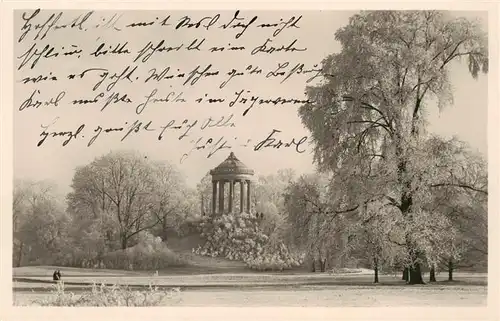 Hoffentl. ist mit Rosl doch nicht
schlim, bitte schreibt eine Karte
wie es geht. Wünschen gute Besserung
Karl musste heute im Jägerverein
Herzl. grüßt Euch Alle
Karl